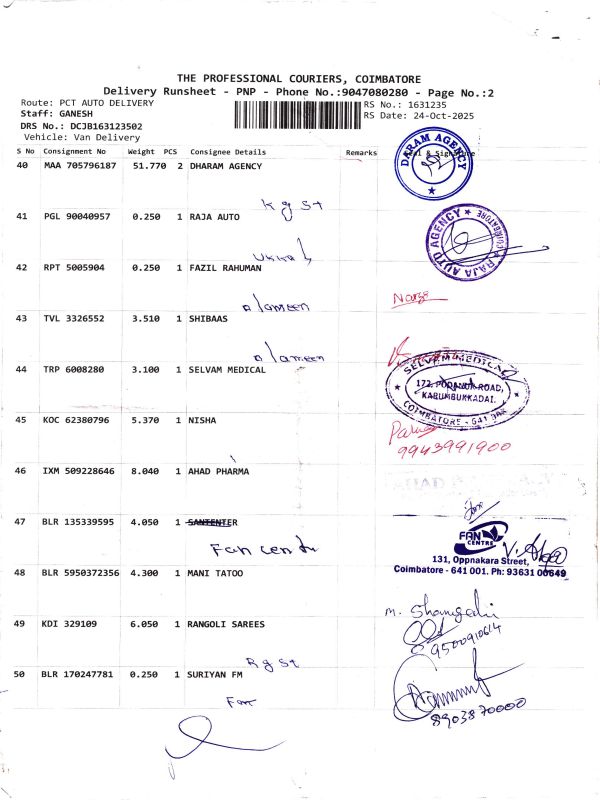 THE PROFESSIONAL COURIERS, COIMBATORE
Delivery Runsheet - PNP - Phone No.:9047080280 - Page No.:2
Route: PCT AUTO DELIVERY RS No.: 1631235
Staff: GANESH RS Date: 24-Oct-2025
DRS No.: DCJB163123502
Vehicle: Van Delivery
S No Consignment No Weight PCS Consignee Details Remarks
40 MAA 705796187 51.770 2 DHARAM AGENCY
DARAM AGENCY
K g St
41 PGL 90040957 0.250 1 RAJA AUTO
RAJA AUTO AGENCY COIMBATORE
42 RPT 5005904 0.250 1 FAZIL RAHUMAN
alameen
43 TVL 3326552 3.510 1 SHIBAAS
alameen
44 TRP 6008280 3.100 1 SELVAM MEDICAL
SELVAM MEDICAL
KARUMBUKKADAI.
COIMBATORE - 641 008
45 KOC 62380796 5.370 1 NISHA
9943991900
46 IXM 509228646 8.040 1 AHAD PHARMA
AHAD
47 BLR 135339595 4.050 1 SANTENTER
Fan centre
FAN CENTRE
131, Oppnakara Street,
Coimbatore - 641 001. Ph: 93631 00649
48 BLR 5950372356 4.300 1 MANI TATOO
49 KDI 329109 6.050 1 RANGOLI SAREES
9500910614
R g St
50 BLR 170247781 0.250 1 SURIYAN FM
8903870000